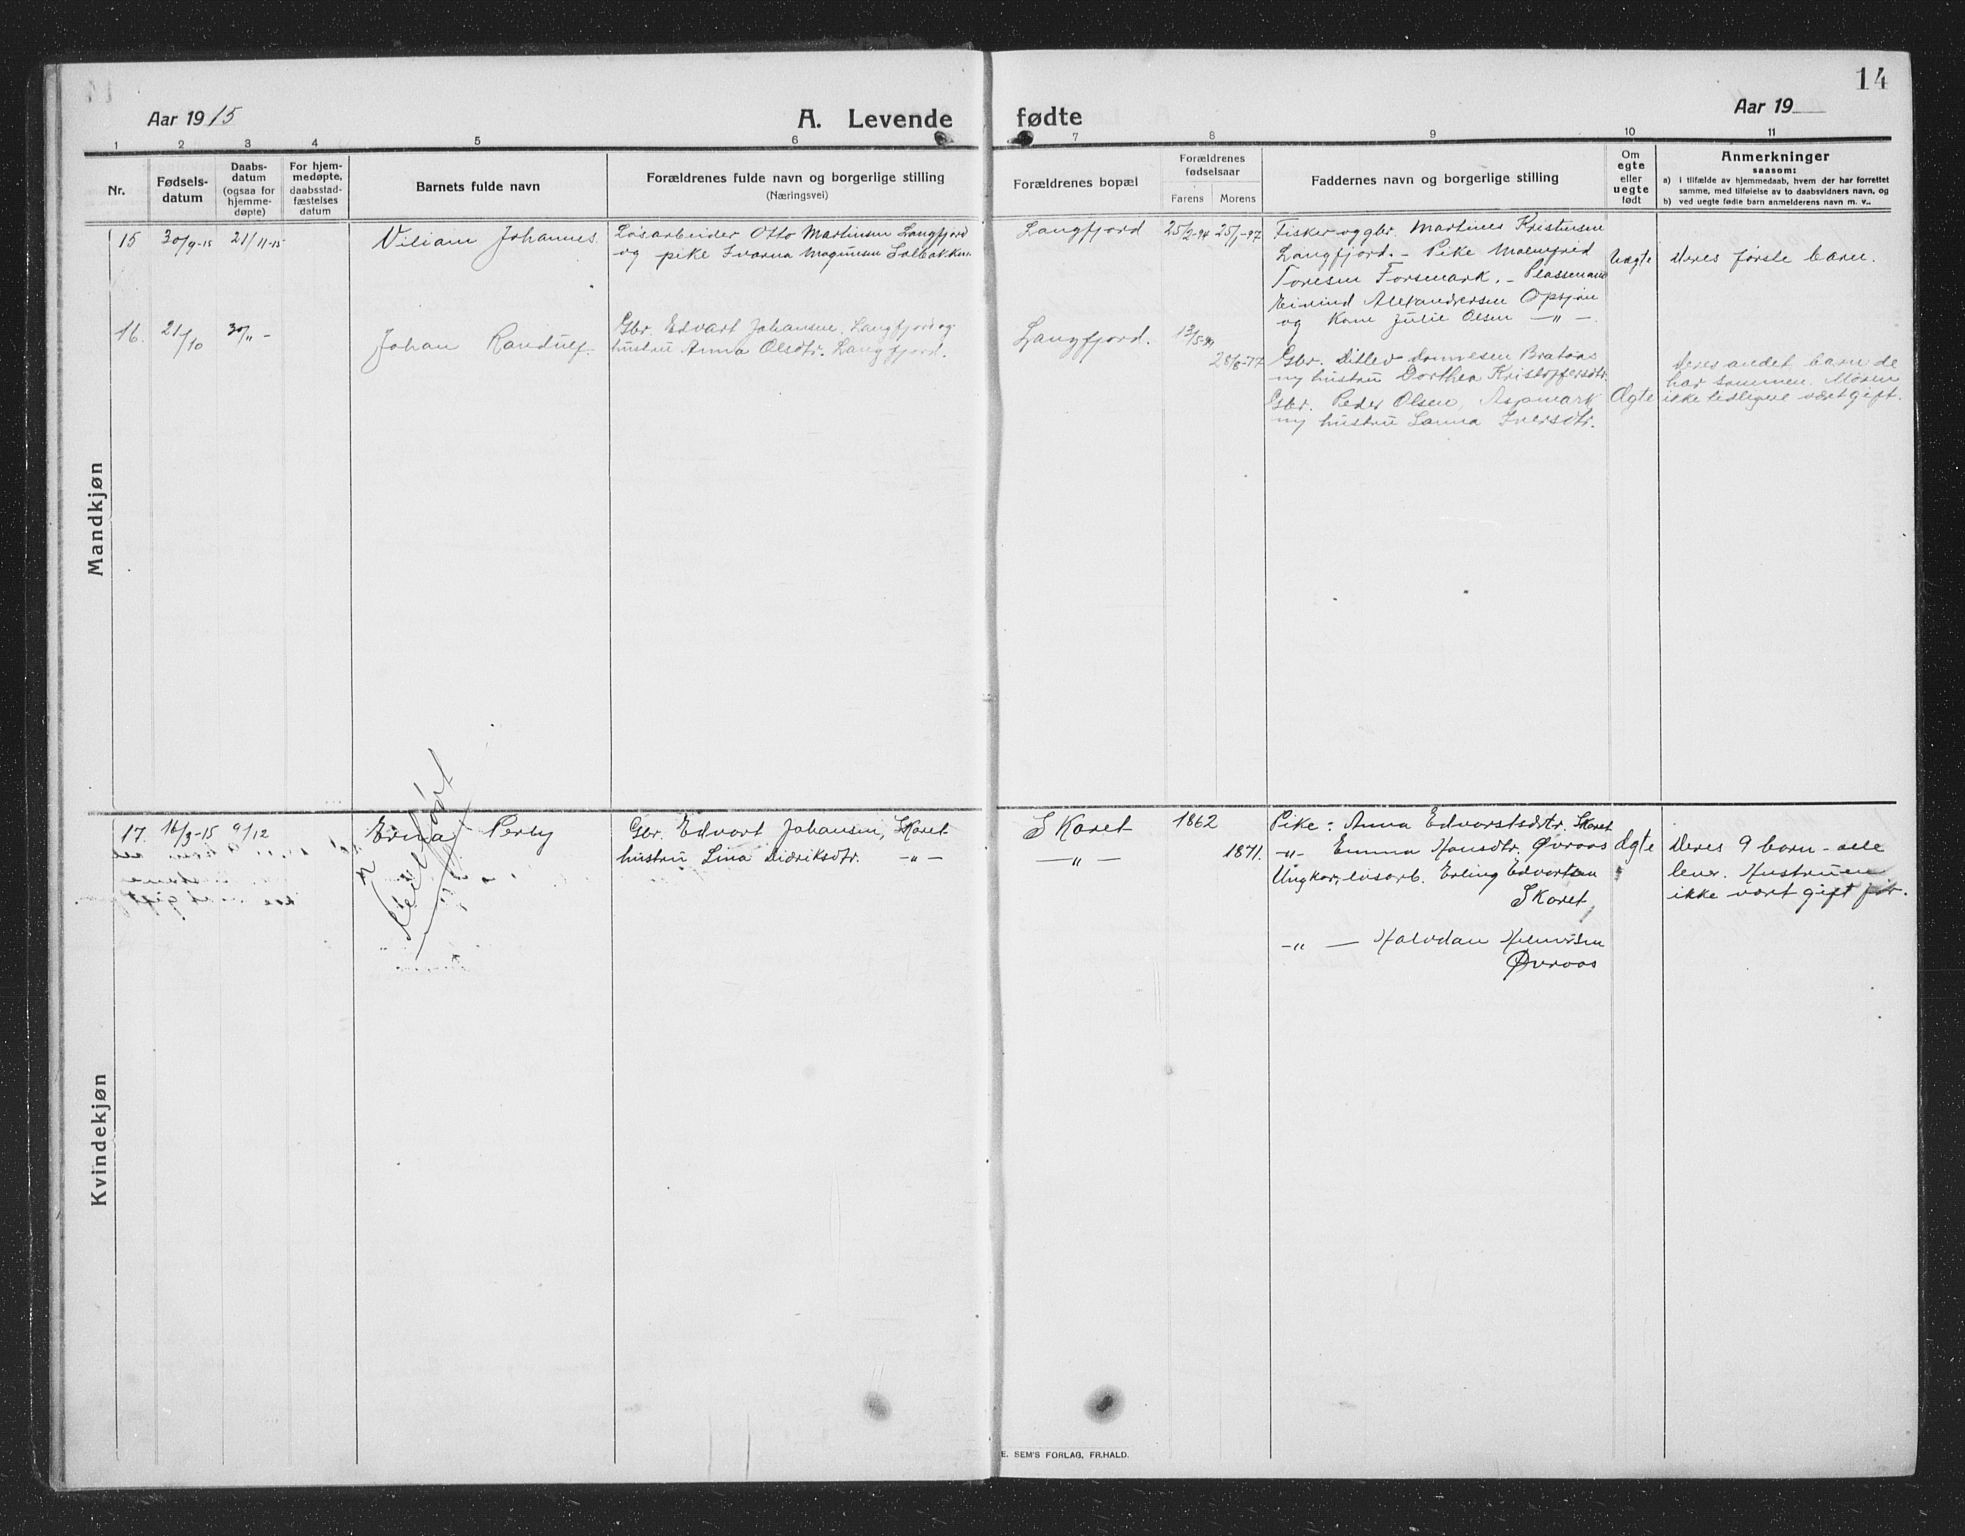 14
Aar 1915
A. Levende fødte
Aar 19
1 2 3 4 5 6 7 8 9 10 11
Nr.
Fødsels-
datum
Daabs-
datum
(ogsaa for
hjemme-
døpte)
For hjem-
medøpte,
daabsstad-
fæstelses
datum
Barnets fulde navn
Forældrenes fulde navn og borgerlige stilling
(Næringsvei)
Forældrenes bopæl
Forældrenes
fødselsaar
Farens Morens
Faddernes navn og borgerlige stilling
Om
egte
eller
uegte
født
Anmerkninger
saasom:
a) i tilfælde av hjemmedaab, hvem der har forrettet
samme, med tilføielse av to daabsvidners navn, og
b) ved uegte fødte barn anmelderens navn m. v..
Mandkjøn
15 30/9-15 21/11-15 Viliam Johannes
Løsarbeider Otto Martinsen Langfjord
og pike Magnusen
Langfjord
25/2-94 25/1-97
Fisker og gbr. Martines Kristensen
Langfjord. - Pike
Toresen Forsmark. - Plassmann
Eivind Alexandersen Opsjøn
og Kone Julie Olsen -"-
Uægte
Deres første barn.
16. 21/10 30/11 - Johan Randulf.
Gbr. Edvart Johansen, Langfjord og
hustru Anna Olsdtr. Langfjord.
Langfjord.
28/8-77
Gbr. Ditlev
og hustru Dorthea Kristoffersdtr.
Gbr. Peder Olsen, Aspmark
og hustru Iversdtr.
Ægte
Deres andet barn de
har sammen. Moren
ikke tidligere vært gift.
Kvindekjøn
17. 16/3-15 9/12 Erna Perly
Gbr. Edvart Johansen, Skaret
hustru Lina Didriksdtr. -"-
Skaret
-"-
1862
1871.
Pike: Anna Edvartsdtr. Skaret
-"- Emma Hansdtr. Øvraas
Ungkar, løsarb. Erling Edvartsen
Skaret
-"- - Halvdan
Øvraas
Ægte
Deres 9 barn - alle
lever. Hustruen
ikke vært gift før.
Feilført
E. SEM'S FORLAG, FR.HALD.